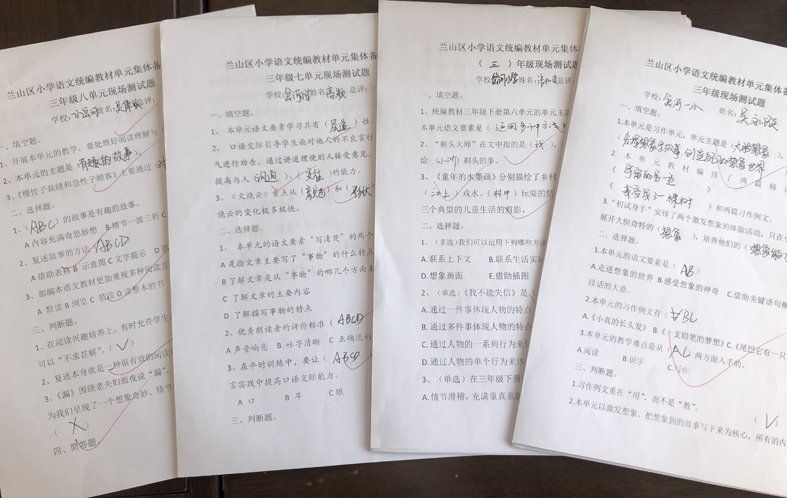 兰山区小学语文统编教材单元集体备
三年级八单元现场测试题
学校: 姓名: 总评:
一、填空题。
1、开展本单元的教学，要处理好阅读理解与
2、本单元的主题是 有趣的故事。
3、《慢性子裁缝和急性子顾客》主要通过
二、选择题。
1、(ABC)的故事是有趣的故事。
A 内容充满奇思妙想 B 情节一波三折 C
2、复述故事的方法 ABCD
A 借助表格 B 示意图 C 文字提示 D
3、部编本语文教材更加重视多种阅读方
A 默读 B 浏览 C 猜读 D 读整本的书
三、判断题。
1、在阅读兴趣培养上，有时允许学生
可以“不求甚解”。(√)
2、复述本身就是一种很有效的阅读
3、《漏》围绕老夫妇雨夜说“漏”，
为我们呈现了一个想象奇妙、情节
(X)
四、简答题。
兰山区小学语文统编教材单元集体备
三年级七单元现场测试题
学校: 姓名: 总评:
一、填空题。
1、 本单元语文要素学习具有(层递)性，
2、 口语交际引导学生面对他人的不良言行
气进行劝告，通过讲道理使别人接受意见，
提高与人(沟通)、(交往)的能力。
3、《火烧云》重点从(颜色)和(形状)
烧云的变化极多极快。
二、选择题。
1、 本单元的语文要素“写清楚”的两个
A 是指文章主要写了“事物”的什么特点
B 了解文章是从“事物”的哪几个方面来
C 了解文章的主要内容
D 了解描写事物的特点
2、优秀朗读者的评价标准(ABCD)
A 声音响亮 B 吐字清晰 C 正确流利
3、在平时训练中，要让(ABCD)
言实践中提高口语交际能力。
A 口 B 耳 C 眼
三、判断题。
兰山区小学语文统编教材单元集体备
(三)年级现场测试题
学校: 姓名: 总评:
一、填空题。
1、统编教材三年级下册第六单元的单元主题
本单元语文要素是(运用多种方法
2、“剃头大师”在文中指的是(我)，
给(小沙)剃头的事。
3、《童年的水墨画》分别描绘了乡村
(江上)戏水、(林中)玩耍的情
三个典型的儿童生活的剪影。
二、选择题。
1、(多选)我们可以运用下列哪些方法
A.联系上下文 B.联系生活实际
D.想象画面 E.借助插图
2、(单选)《我不能失信》是
A.通过一件事体现人物的特点
B.通过多件事体现人物的特点
C.通过人物的一系列行为来体
D.通过人物的单个行为来体
3、(单选)在三年级下册
A.情节滑稽，充满童真童趣
兰山区小学语文统编教材单元集体备
三年级现场测试题
学校: 姓名:
一、填空题。
1.本单元是习作单元，单元主题是(大胆想象)，
2. 本单元教材编排了两篇精
《宇宙的另一边》
《我变成了一棵树》 和两篇习作例文。
3.“初试身手”安排了两个激发想象的体验活动，只在
展开大胆奇特的(想象)，培养他们的(想象
二、选择题。
1.本单元的语文要素是(AB)
A.走进想象的世界 B.感受想象的神奇 C.借助关键语句概
段话的大意。
2.本单元的习作例文有
A.《小真的长头发》 B.《一支铅笔的梦想》 C.《尾巴它有一只
3.本单元的教学难点是从(AC)两方面入手的。
A.阅读 B.识字 C.写作
三、判断题。
1.习作例文重在“用”，而不是“教”。
(√)
2.本单元以激发想象、把想象到的故事写下来为核心，所有的内